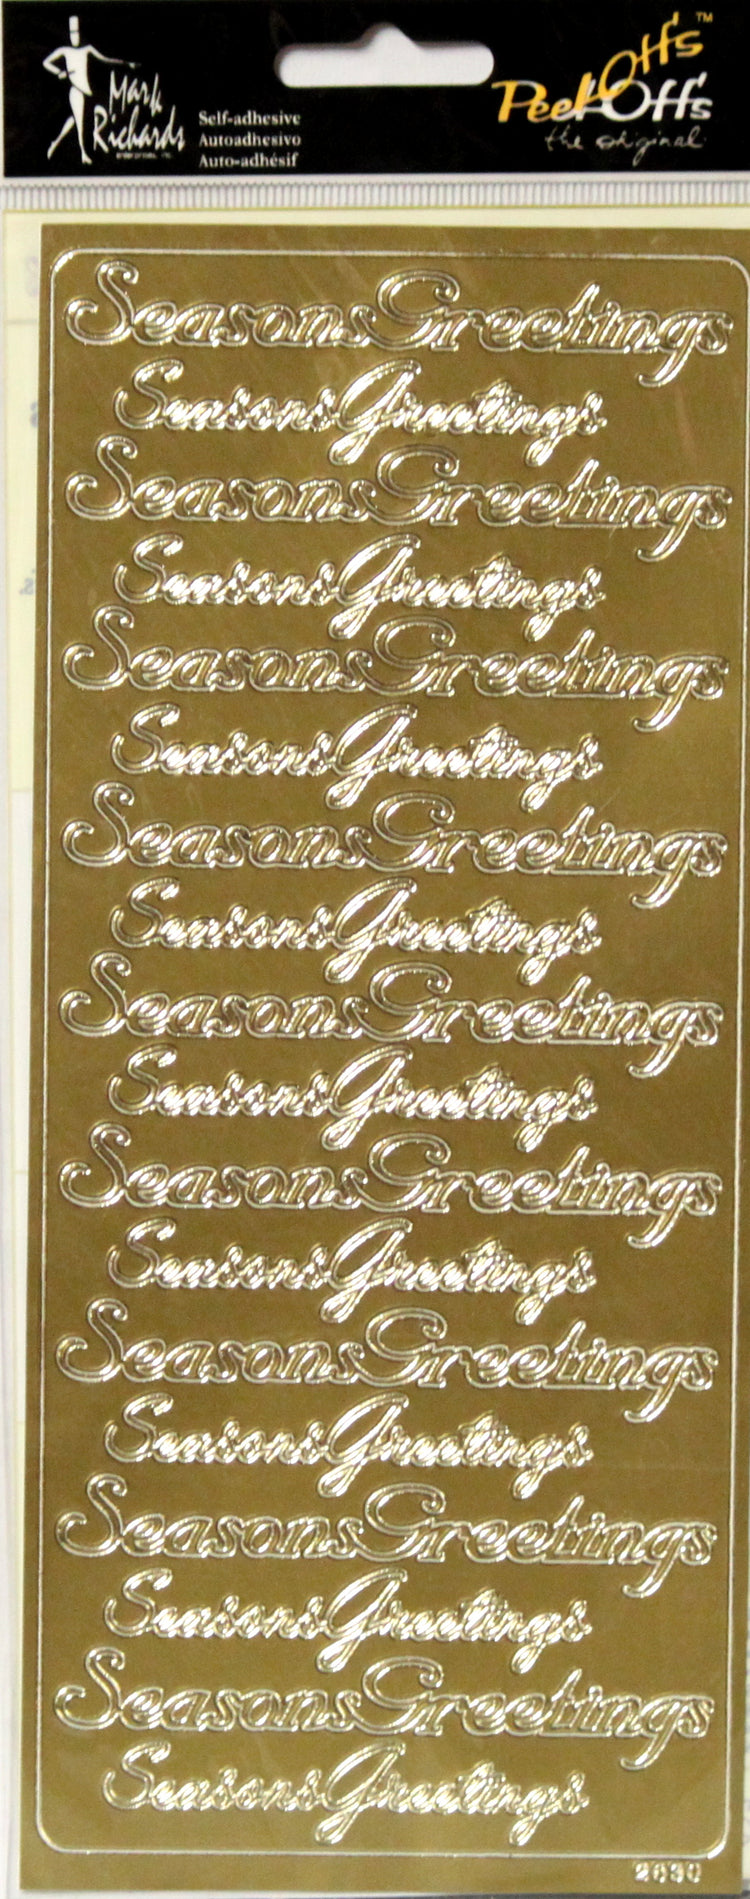 Mark
Richards
Self-adhesive
Autoadhesivo
Auto-adhésif
Off's™
Peel Off's
the original
Seasons Greetings
Seasons Greetings
Seasons Greetings
Seasons Greetings
Seasons Greetings
Seasons Greetings
Seasons Greetings
Seasons Greetings
Seasons Greetings
Seasons Greetings
Seasons Greetings
Seasons Greetings
Seasons Greetings
Seasons Greetings
Seasons Greetings
Seasons Greetings
Seasons Greetings
Seasons Greetings
2630